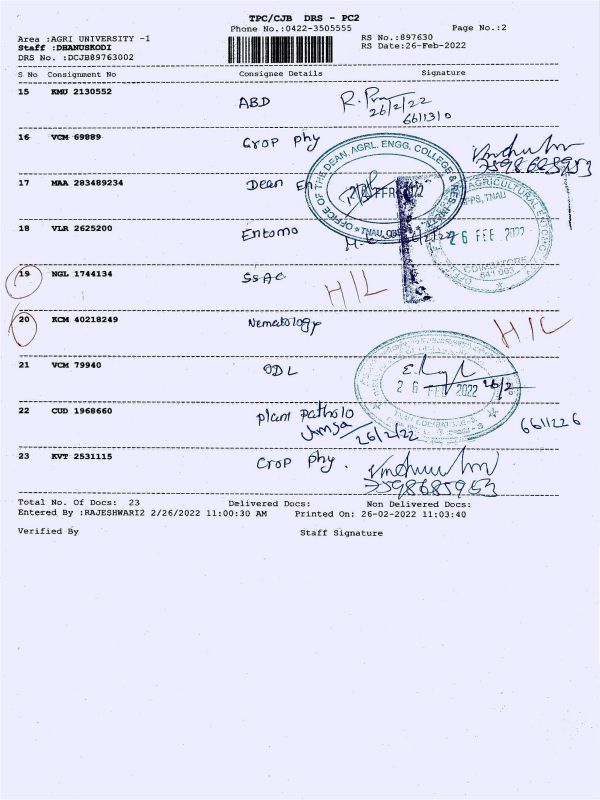 TPC/CJB DRS - PC2
Phone No.:0422-3505555 Page No.:2
Area :AGRI UNIVERSITY -1 RS No.:897630
Staff :DHANUSKODI RS Date:26-Feb-2022
DRS No. :DCJB89763002
S No Consignment No Consignee Details Signature
15 KMU 2130552 ABD
26/2/22
6611310
16 VCM 69889 Crop Phy
OFFICE OF THE DEAN, AGRL. ENGG. COLLEGE & RES. INST.
17 MAA 283489234 Dean En
AGRICULTURAL
TNAU
18 VLR 2625200 Entomo
26 FEB 2022
COIMATORE
641 003
19 NGL 1744134 SSAC H/L
20 KCM 40218249 Nematology H/L
21 VCM 79940 ODL
26 FEB 2022 26/2
22 CUD 1968660 Plant Patholo
26/2/22 6611226
23 KVT 2531115 Crop Phy.
Total No. Of Docs: 23 Delivered Docs: Non Delivered Docs:
Entered By :RAJESHWARI2 2/26/2022 11:00:30 AM Printed On: 26-02-2022 11:03:40
Verified By Staff Signature